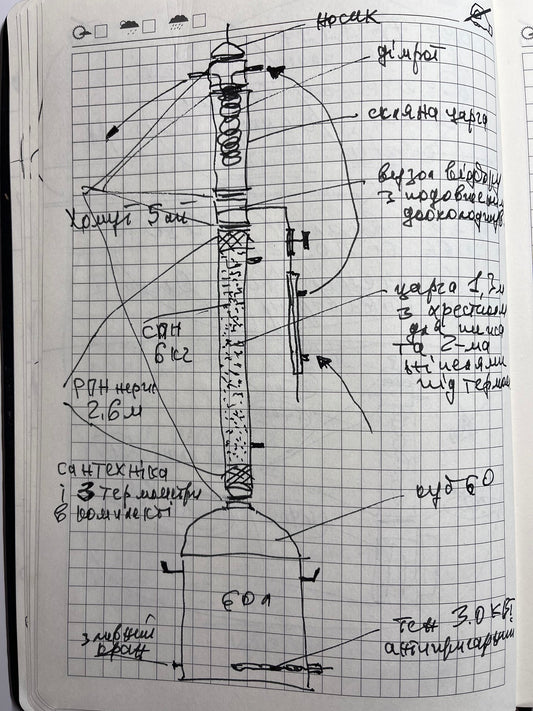 носик
дімрот
скляна царга
вузол відбору
з подовженим
доохолоджув
Хомут 5 шт
царга 1,7м
з хрестиком
для низа
та 2-ма
під термом
СПН
6 кг
РПН нерж
2,6 м
сантехніка
і 3 термометри
в комплекті
куб 60
60л
зливний
кран
тен 3.0 кВт
антипригарний